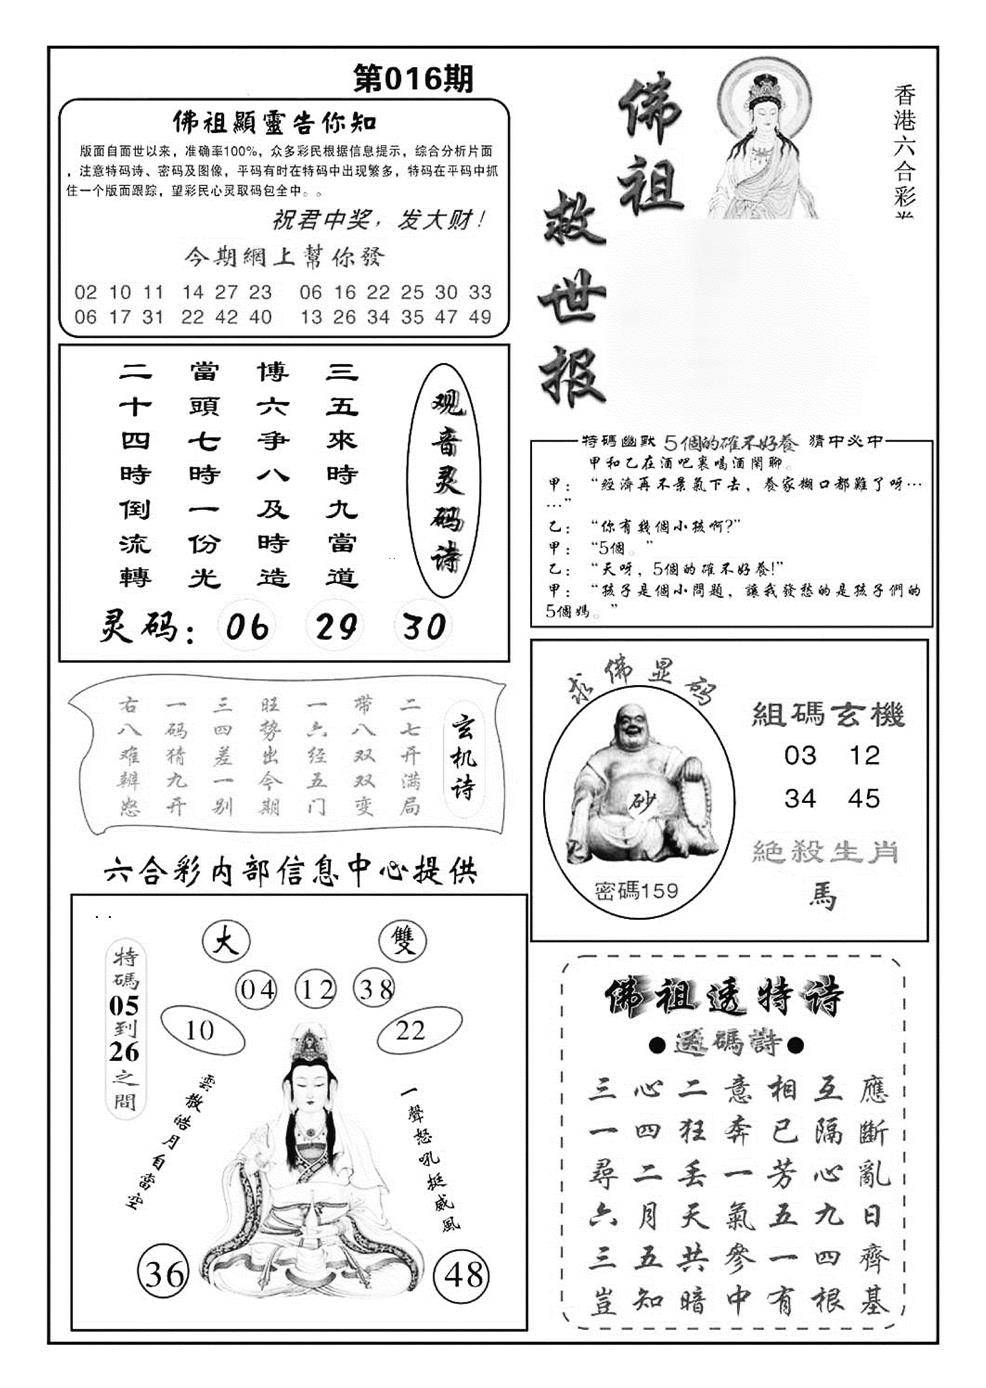 第016期
佛祖顯靈告你知
版面自面世以来，准确率100%，众多彩民根据信息提示，综合分析片面
，注意特码诗、密码及图像，平码有时在特码中出现繁多，特码在平码中抓
住一个版面跟踪，望彩民心灵取码包全中。。
祝君中奖，发大财！
今期網上幫你發
02 10 11 14 27 23 06 16 22 25 30 33
06 17 31 22 42 40 13 26 34 35 47 49
佛祖
救世报
香港六合彩
观音灵码诗
三五來時九當道
博六爭八及時造
當頭七時一份光
二十四時倒流轉
灵码：06 29 30
特碼幽默 5個的確不好養 猜中必中
甲和乙在酒吧裏喝酒閑聊。
甲：“經濟再不景氣下去，養家糊口都難了呀…
…”
乙：“你有幾個小孩啊?”
甲：“5個。”
乙：“天呀，5個的確不好養!”
甲：“孩子是個小問題，讓我發愁的是孩子們的
5個媽。”
玄机诗
二七开满局
带八双双变
一六经五门
旺势出今期
三四差一别
一码猜九开
右八难辨怒
求佛显码
砂
密碼159
組碼玄機
03 12
34 45
絕殺生肖
馬
六合彩内部信息中心提供
大
雙
04 12 38
10
22
特碼05到26之間
雲散皓月自當空
一聲怒吼挺威風
36
48
佛祖透特诗
●透碼詩●
三心二意相互應
一四狂奔已隔斷
尋二丟一芳心亂
六月天氣五九日
三五共參一四齊
豈知暗中有根基